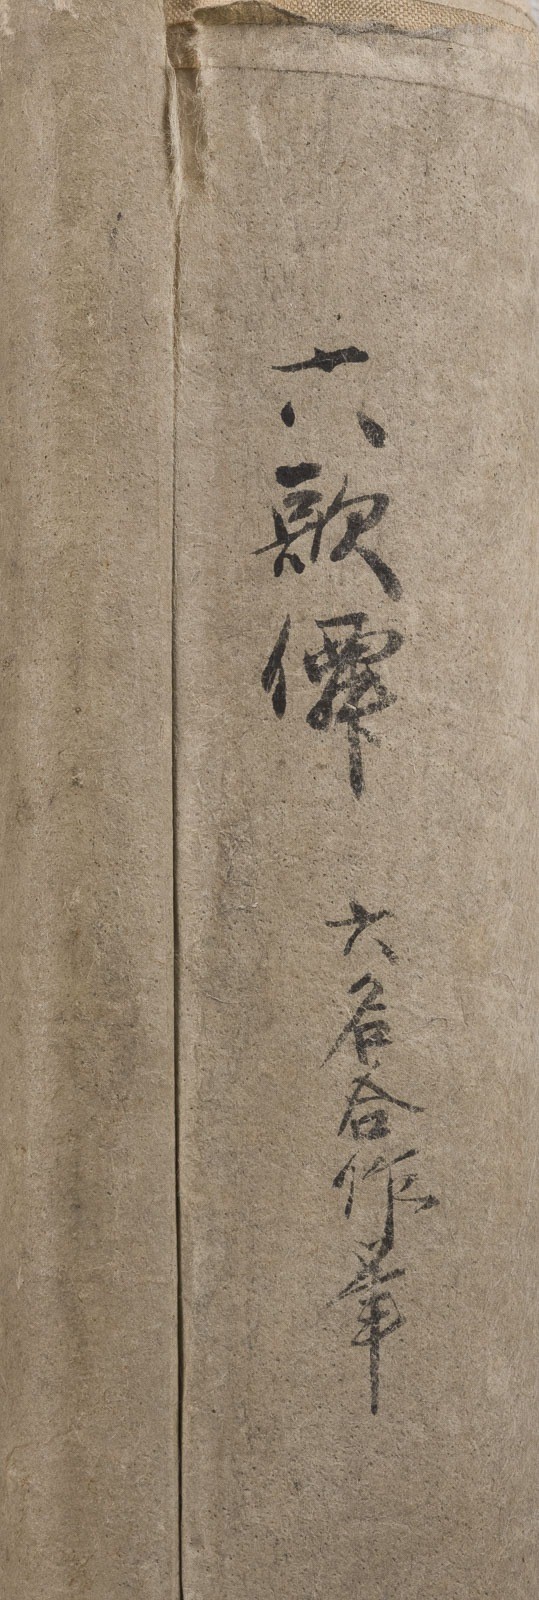 六歌僊
六名合作筆